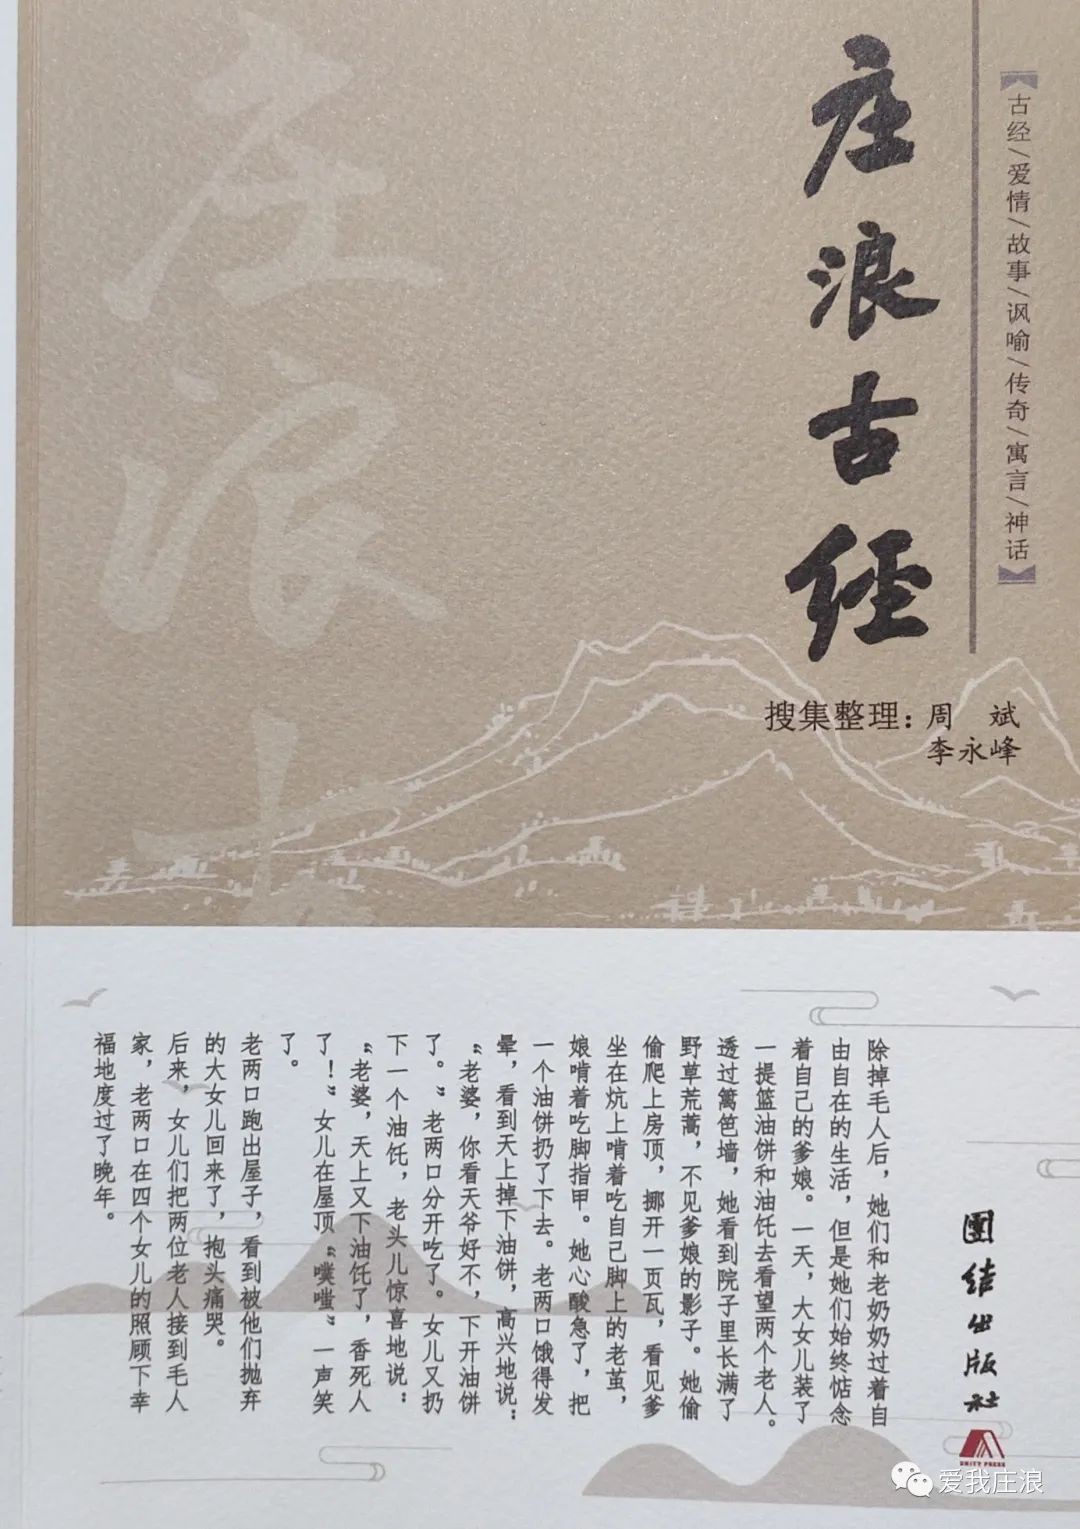 【古经/爱情/故事/讽喻/传奇/寓言/神话】
庄浪古经
搜集整理：周 斌
李永峰
庄浪
除掉毛人后，她们和老奶奶过着自
由自在的生活，但是她们始终惦念
着自己的爹娘。一天，大女儿装了
一提篮油饼和油饦去看望两个老人。
透过篱笆墙，她看到院子里长满了
野草荒蒿，不见爹娘的影子。她偷
偷爬上房顶，挪开一页瓦，看见爹
坐在炕上啃着吃自己脚上的老茧，
娘啃着吃脚指甲。她心酸急了，把
一个油饼扔了下去。老两口饿得发
晕，看到天上掉下油饼，高兴地说：
“老婆，你看天爷好不，下开油饼
了。”老两口分开吃了。女儿又扔
下一个油饦，老头儿惊喜地说：
“老婆，天上又下油饦了，香死人
了！”女儿在屋顶“噗嗤”一声笑
了。
老两口跑出屋子，看到被他们抛弃
的大女儿回来了，抱头痛哭。
后来，女儿们把两位老人接到毛人
家，老两口在四个女儿的照顾下幸
福地度过了晚年。
團结出版社
UNITY PRESS
爱我庄浪